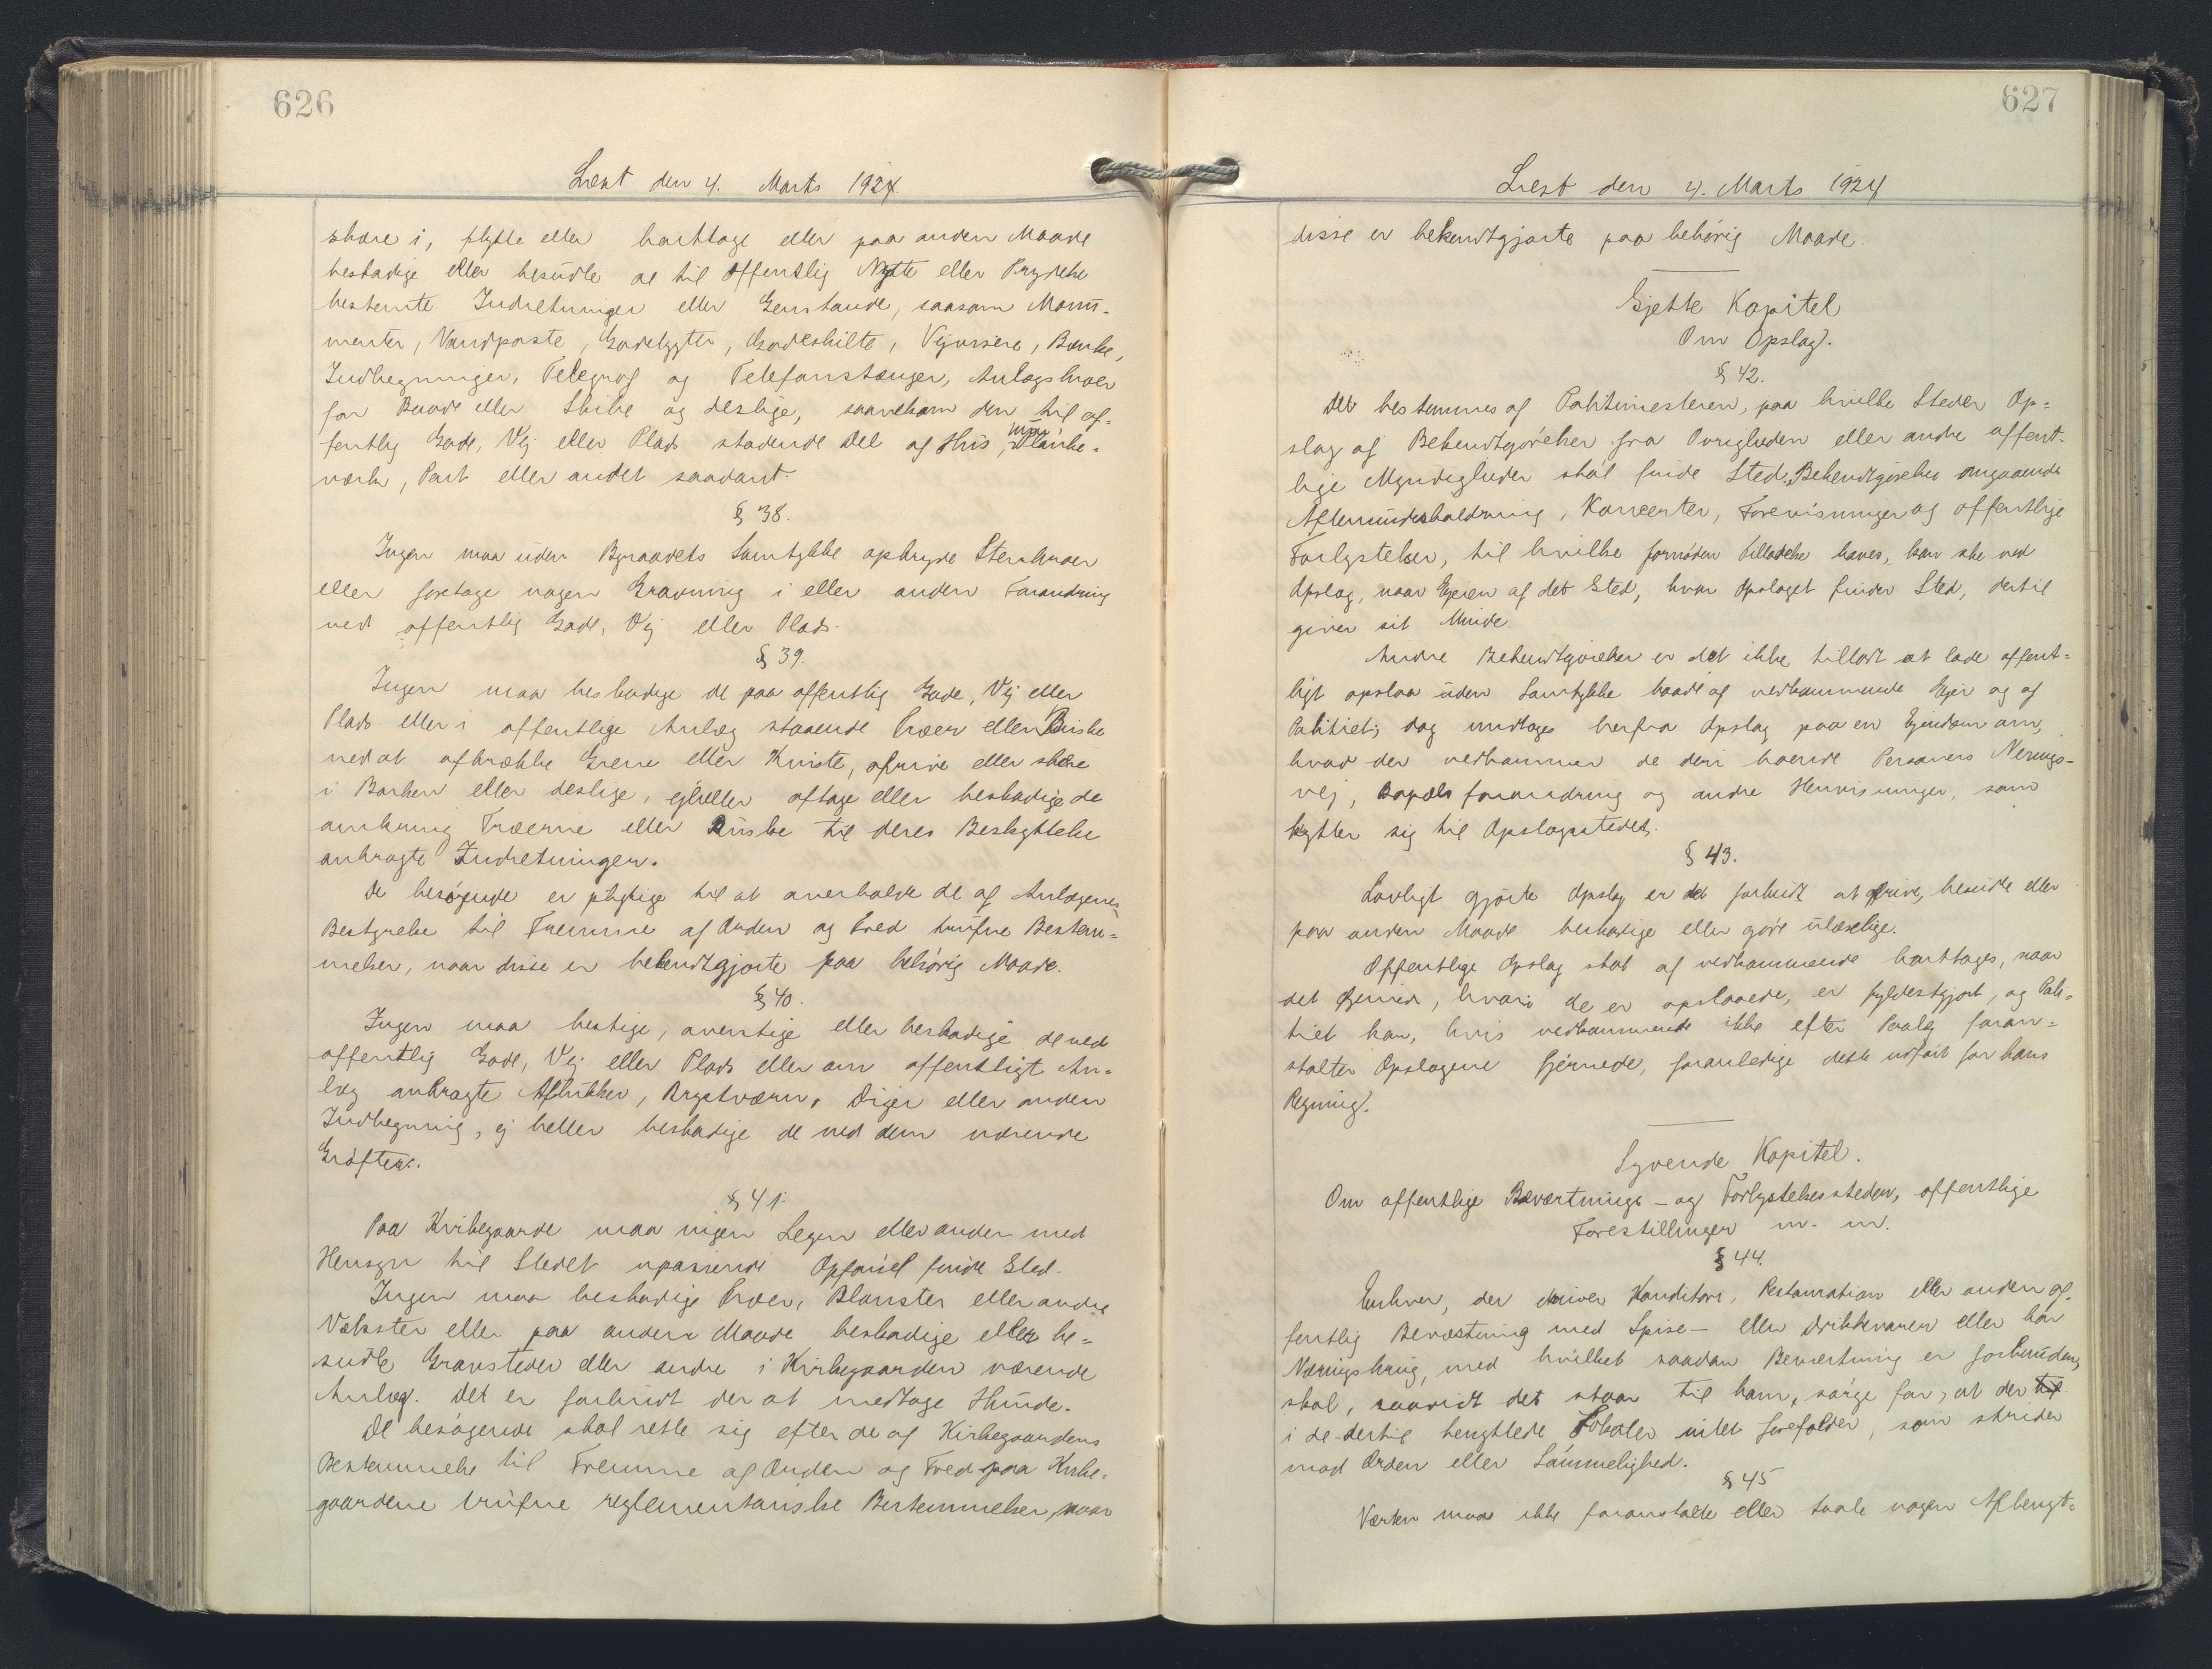 626
Læst den 4. Marts 1924.
skære i, flytte eller borttage eller paa anden Maade
beskadige eller besudle de til offentlig Nytte eller Prydelse
bestemte Indretninger eller Genstande, saasom Monu-
menter, Vandposte, Gadelygter, Gadeskilte, Vejvisere, Bænke,
Indhegninger, Telegraf og Telefonstænger, Anlagsbroer
for Baade eller Skibe og deslige, saavelsom den til of-
fentlig Gade, Vej eller Plads stødende Del af Hus, Mur, Planke-
værk, Port eller andet saadant.
§ 38.
Ingen maa uden Byraadets Samtykke opbryde Stenbroer
eller foretage nogen Gravning i eller anden Forandring
ved offentlig Gade, Vej eller Plads.
§ 39.
Ingen maa beskadige de paa offentlig Gade, Vej eller
Plads eller i offentlige Anlæg staaende Træer eller Buske
ved at afbrække Grene eller Kviste, afrive eller skære
i Barken eller deslige, ejheller aftage eller beskadige de
omkring Træerne eller Buske til deres Beskyttelse
anbragte Indretninger.
De besøgende er pligtige til at overholde de af Anlægenes
Bestyrelse til Fremme af Orden og Fred trufne Bestem-
melser, naar disse er bekendtgjorte paa behørig Maade.
§ 40.
Ingen maa bestige, overstige eller beskadige de ved
offentlig Gade, Vej eller Plads eller om offentligt An-
læg anbragte Aflukker, Brystværn, Diger eller anden
Indhegning, ej heller beskadige de ved dem værende
Grøfter.
§ 41.
Paa Kirkegaarde maa ingen Legen eller anden med
Hensyn til Stedet upassende Opførsel finde Sted.
Ingen maa beskadige Træer, Blomster eller andre
Vækster eller paa anden Maade beskadige eller be-
sudle Gravsteder eller andre i Kirkegaarden værende
Anlæg. Det er forbudt der at medtage Hunde.
De besøgende skal rette sig efter de af Kirkegaardens
Bestemmelse til Fremme af Orden og Fred paa Kirke-
gaardene trufne reglementariske Bestemmelser, naar
627
Læst den 4. Marts 1924
disse er bekendtgjorte paa behørig Maade.
Sjette Kapitel
Om Opslag.
§ 42.
Det bestemmes af Politimesteren, paa hvilke Steder Op-
slag af Bekendtgørelser fra Øvrigheden eller andre offent-
lige Myndigheder skal finde Sted. Bekendtgørelser angaaende
Aftenunderholdning, Koncerter, Forevisninger og offentlige
Forlystelser, til hvilke fornøden Tilladelse haves, kan ske ved
Opslag, naar Ejeren af det Sted, hvor Opslaget finder Sted, dertil
giver sit Minde.
Andre Bekendtgørelser er det ikke tilladt at lade offent-
ligt opslaa uden Samtykke baade af vedkommende Ejer og af
Politiet; dog undtages herfra Opslag paa en Ejendom om,
hvad der vedkommer de deri boende Personers Nærings-
vej, Bopælsforandring og andre Henvisninger, som
knytter sig til Opslagsstedet.
§ 43.
Lovligt gjorte Opslag er det forbudt at afrive, besudle eller
paa anden Maade beskadige eller gøre ulæselige.
Offentlige Opslag skal af vedkommende borttages, naar
det Øjemed, hvori de er opslaaede, er fyldestgjort, og Poli-
tiet kan, hvis vedkommende ikke efter Paalæg foran-
stalter Opslagene fjernede, foranledige dette udført for hans
Regning.
Syvende Kapitel.
Om offentlige Beværtnings- og Forlystelsessteder, offentlige
Forestillinger m. m.
§ 44.
Enhver, der driver Konditori, Restauration eller anden of-
fentlig Beværtning med Spise- eller Drikkevarer eller har
Næringsbrug, med hvilket saadan Beværtning er forbunden,
skal, saavidt det staar til ham, sørge for, at der til
i de dertil benyttede Lokaler intet forefalder, som strider
mod Orden eller Sømmelighed.
§ 45
Værten maa ikke foranstalte eller taale nogen Afbenyt-